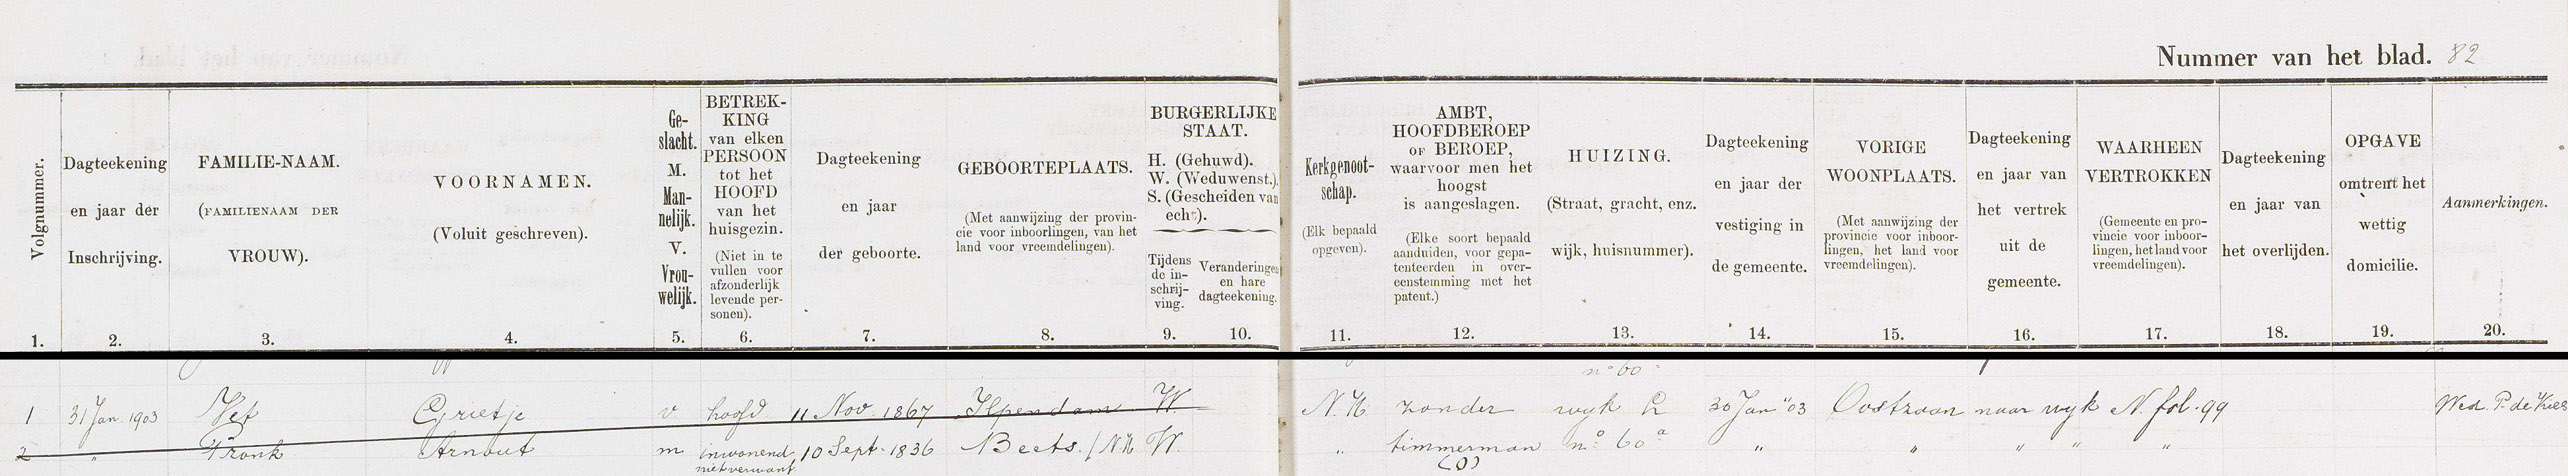 Nummer van het blad. 82
Volgnummer.
1.
Dagteekening
en jaar der
Inschrijving.
2.
FAMILIE-NAAM.
(FAMILIENAAM DER
VROUW).
3.
VOORNAMEN.
(Voluit geschreven).
4.
Ge-
slacht.
M.
Man-
nelijk.
V.
Vrou-
welijk.
5.
BETREK-
KING
van elken
PERSOON
tot het
HOOFD
van het
huisgezin.
(Niet in te
vullen voor
afzonderlijk
levende per-
sonen).
6.
Dagteekening
en jaar
der geboorte.
7.
GEBOORTEPLAATS.
(Met aanwijzing der provin-
cie voor inboorlingen, van het
land voor vreemdelingen).
8.
BURGERLIJKE
STAAT.
H. (Gehuwd).
W. (Weduwenst.).
S. (Gescheiden van
echt).
Tijdens
de in-
schrij-
ving.
9.
Veranderingen
en hare
dagteekening.
10.
Kerkgenoot-
schap.
(Elk bepaald
opgeven).
11.
AMBT,
HOOFDBEROEP
OF BEROEP,
waarvoor men het
hoogst
is aangeslagen.
(Elke soort bepaald
aanduiden, voor gepa-
tenteerden in over-
eenstemming met het
patent.)
12.
HUIZING.
(Straat, gracht, enz.
wijk, huisnummer).
13.
Dagteekening
en jaar der
vestiging in
de gemeente.
14.
VORIGE
WOONPLAATS.
(Met aanwijzing der
provincie voor inboor-
lingen, het land voor
vreemdelingen).
15.
Dagteekening
en jaar van
het vertrek
uit de
gemeente.
16.
WAARHEEN
VERTROKKEN
(Gemeente en pro-
vincie voor inboor-
lingen, het land voor
vreemdelingen).
17.
Dagteekening
en jaar van
het overlijden.
18.
OPGAVE
omtrent het
wettig
domicilie.
19.
Aanmerkingen.
20.
no 60
1 31 Jan. 1903 Grietje v hoofd 11 Nov. 1867 Ilpendam W N.H. zonder wyk 30 Jan "03 Oostzaan naar wyk N. fol. 99 Wed. P. de
2 " Pronk Arnout m inwonend 10 Sept. 1836 Beets. / NH W. " timmerman no 60a " " " " "
niet verwant (O)